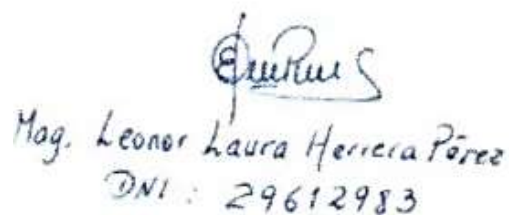 Mag. Leonor Laura Herrera Pérez
DNI : 29612983